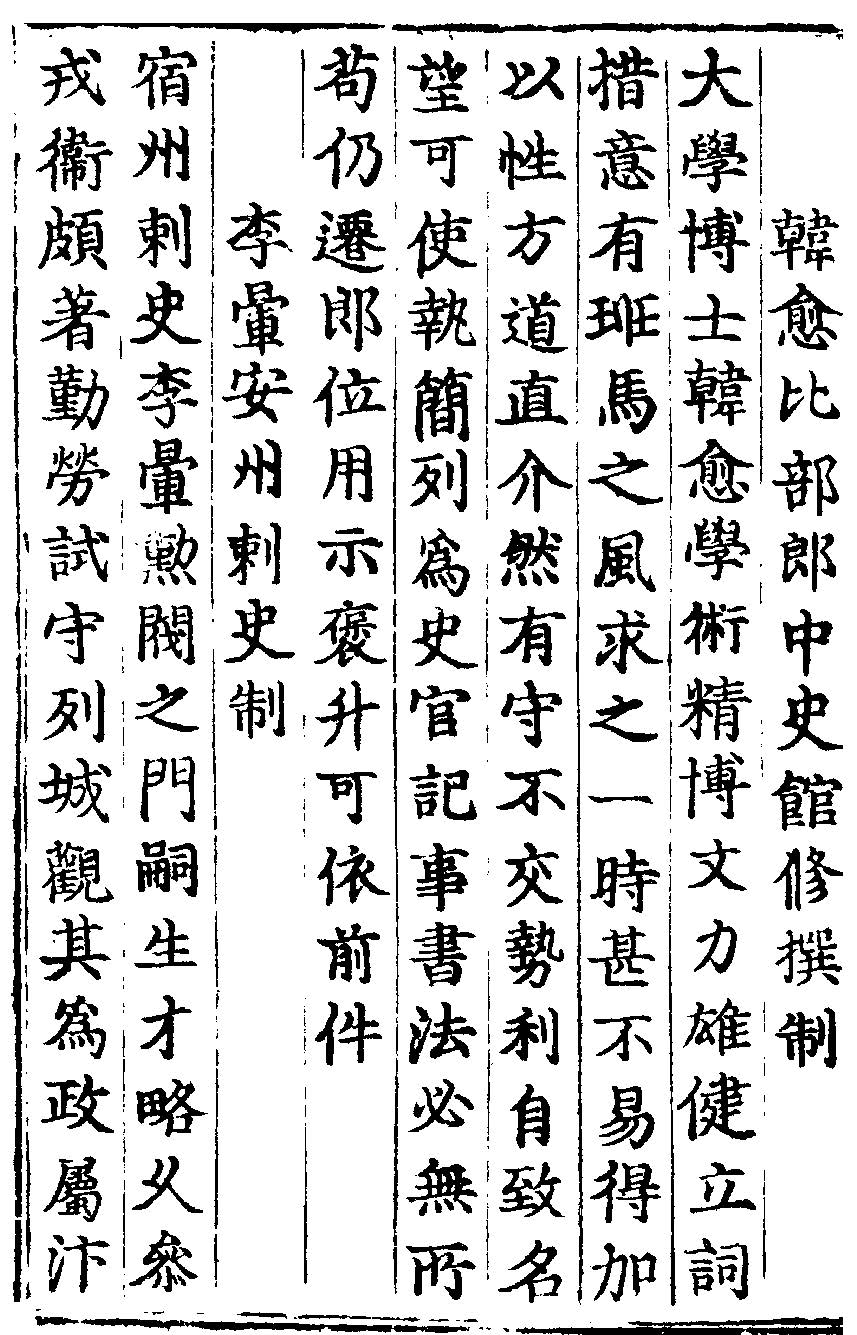 韓愈比部郎中史館修撰制
大學博士韓愈學術精博文力雄健立詞
措意有班馬之風求之一時甚不易得加
以性方道直介然有守不交勢利自致名
望可使執簡列爲史官記事書法必無所
苟仍遷郎位用示褒升可依前件
李暈安州刺史制
宿州刺史李暈勲閥之門嗣生才略乆叅
戎衞頗著勤勞試守列城觀其爲政屬汴